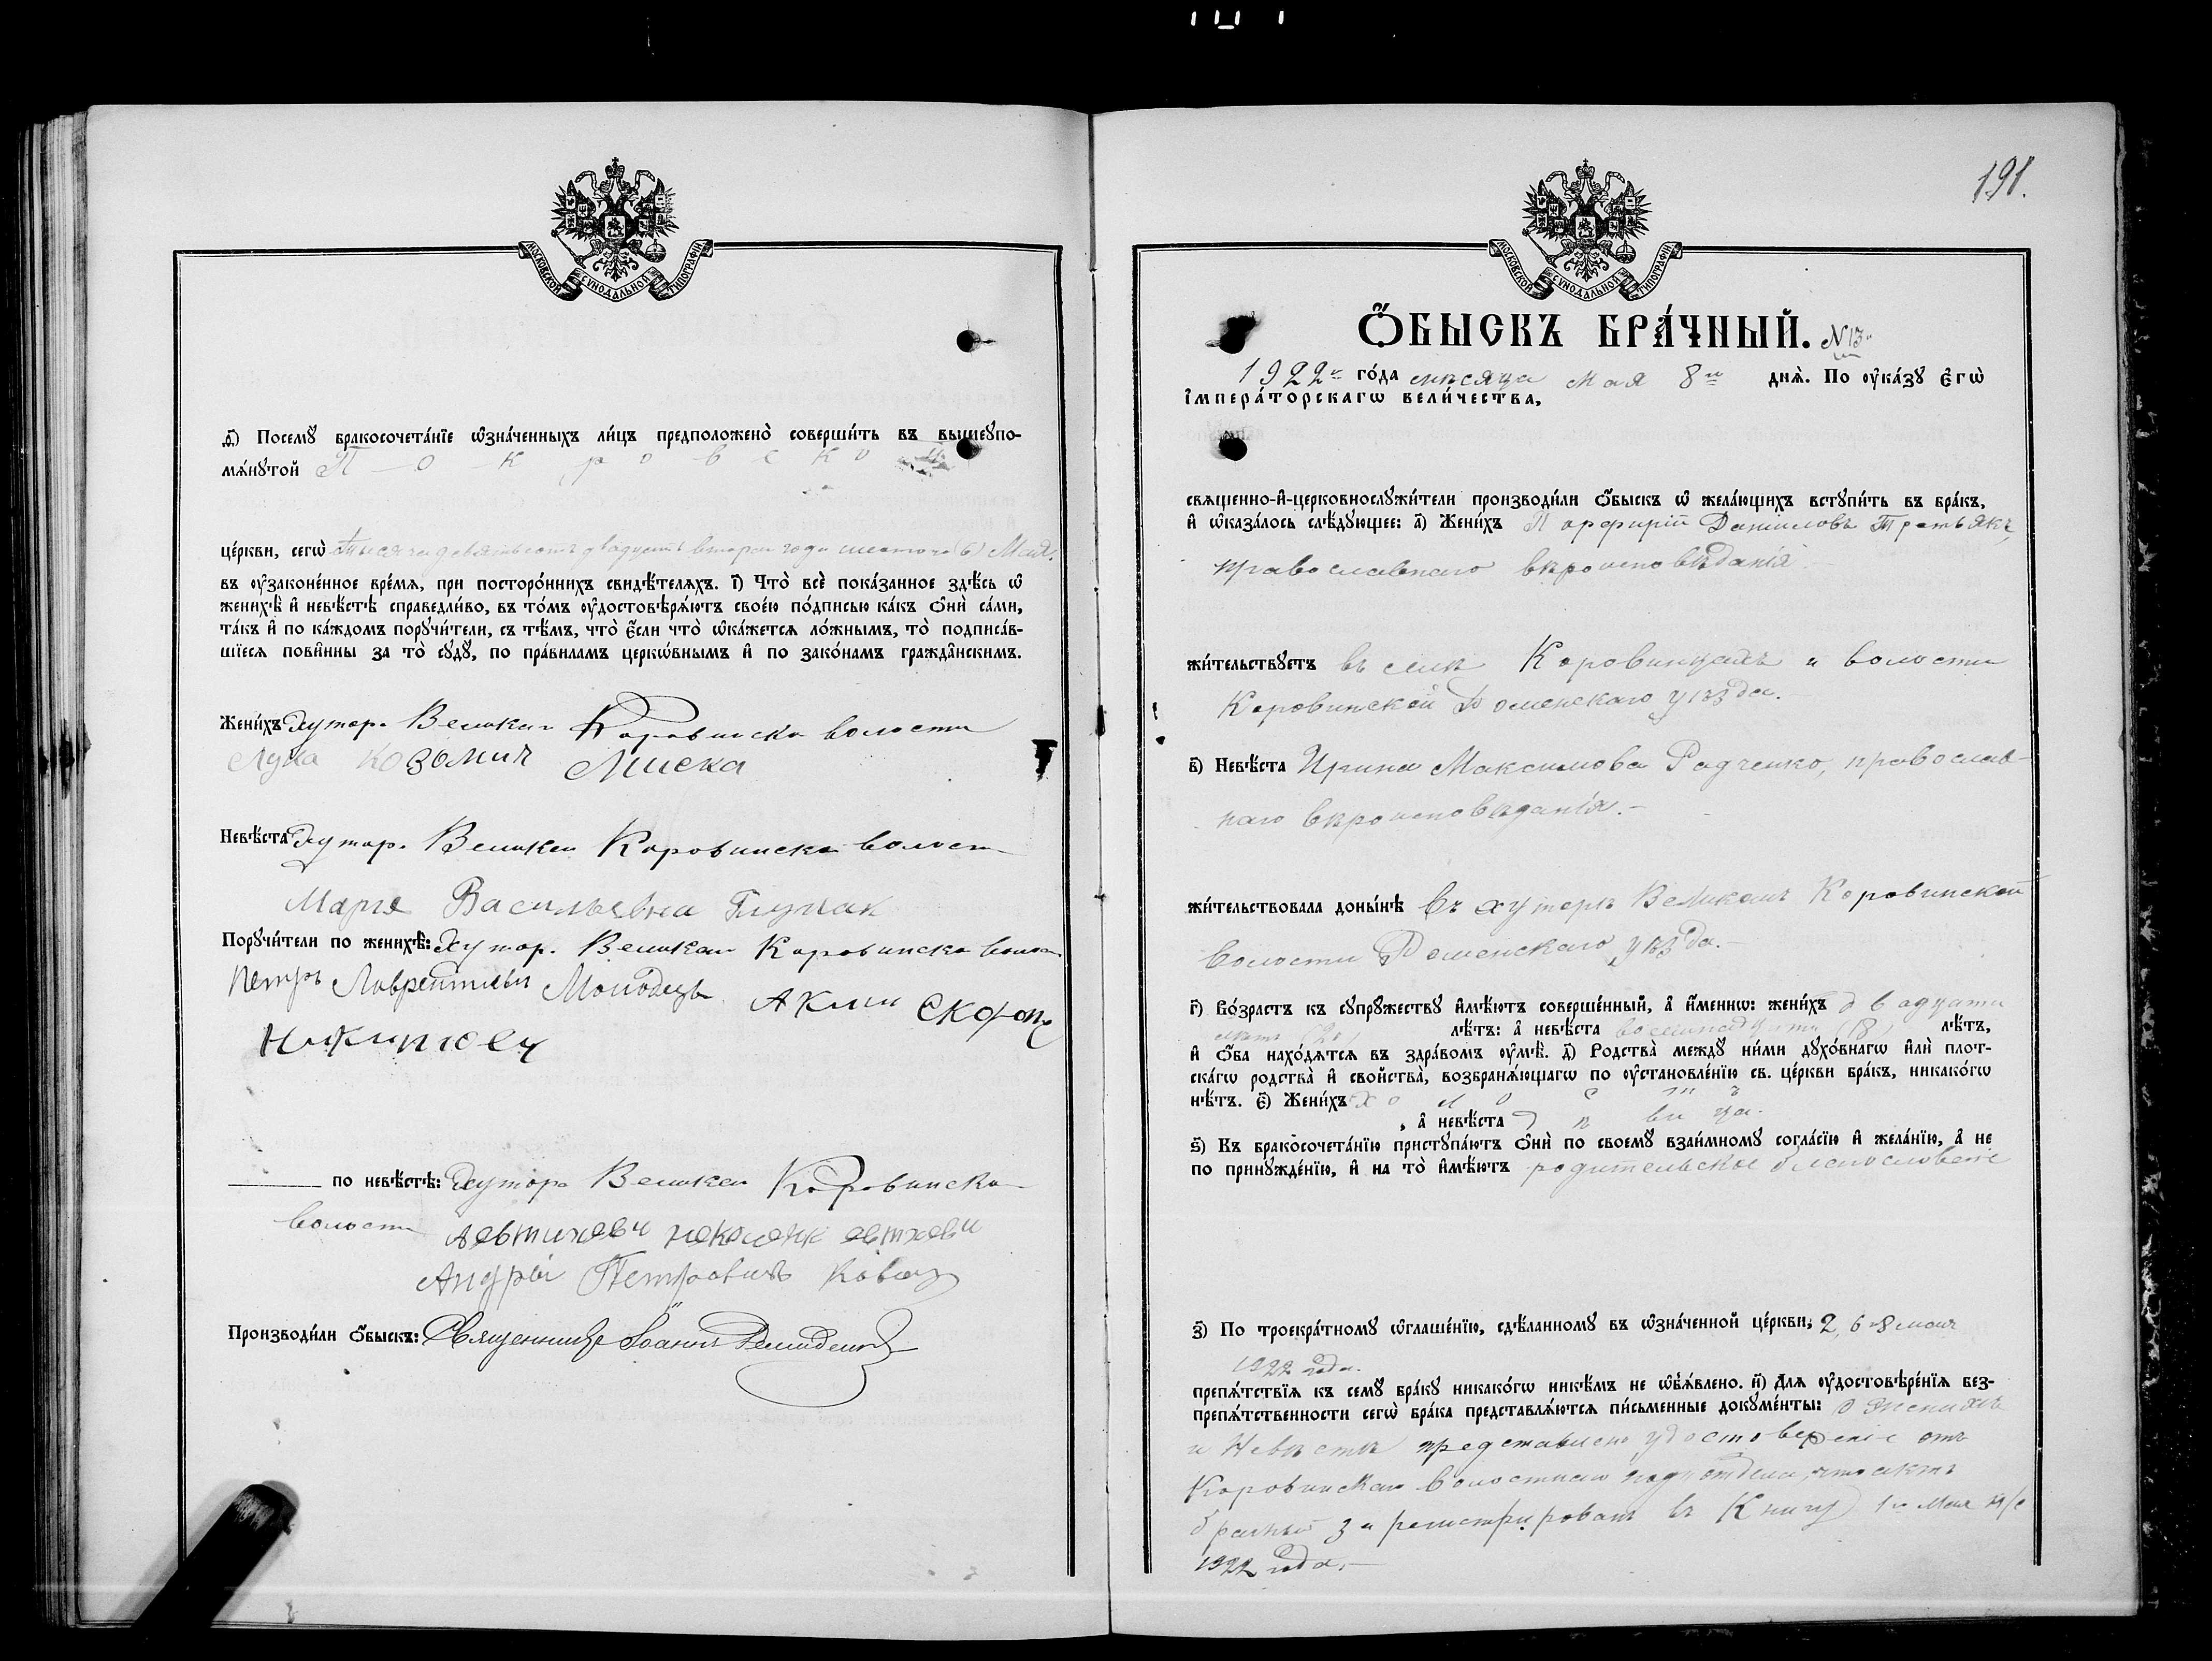 МОСКОВСКОЙ СѴНОДАЛЬНОЙ ТИПОГРАФІИ
ѳ҃) Посемꙋ бракосочета́нїе ѡзна́ченныхъ ли́цъ предположено̀ соверши́ть въ вышеꙋпо-
мѧ́нꙋтой Покровско
це́ркви, сегѡ̀ тысяча девятьсотъ двадцать второго года шестого (6) Мая
въ ᲂу҆зако́ненное вре́мѧ, при посторо́ннихъ свидѣ́телѧхъ. і҃) Что̀ всѐ пока́занное здѣ́сь ѡ҆
женихѣ̀ и҆ невѣ́стѣ справедли́во, въ то́мъ ᲂу҆достовѣрѧ́ютъ свое́ю по́дписью ка́къ ѻ҆нѝ са́ми,
та́къ и҆ по ка́ждомъ порꙋчи́тели, съ тѣ́мъ, что̀ є҆́сли что̀ ѡ҆ка́жетсѧ ло́жнымъ, то̀ подписа́в-
шїесѧ пови́нны за то̀ сꙋдꙋ̀, по пра́виламъ церкѡ́внымъ и҆ по зако́намъ гражда̂нскимъ.
Жени́хъ Хутор. Великаи Коровинско волости
Лука Козомич Лиска
Невѣ́ста Хутор. Великаи Коровинско волост
Марія Васильевна
Порꙋчи́тели по женихѣ̀: Хутор. Великаи Коровинско волост
Петръ Лаврентиевъ Молодецъ Аким Скороп
по невѣ́стѣ: Хутор. Великаи Коровинско
волости
Андрій Петровичъ Коваль
Производи́ли ѻ҆́быскъ: Священникъ Іоаннъ
191.
МОСКОВСКОЙ СѴНОДАЛЬНОЙ ТИПОГРАФІИ
Ѻ҆́БЫСКЪ БРА́ЧНЫЙ. N 13
1922 го́да мѣсяца мая 8 днѧ̀. По ᲂу҆ка́зꙋ є҆гѡ̀
і҆мпера́торскагѡ вели́чества,
свѧщенно-и҆-церковнослꙋжи́тели производи́ли ѻ҆́быскъ ѡ҆ жела́ющихъ встꙋпи́ть въ бра́къ,
и҆ ѡ҆каза́лось слѣ́дꙋющее: а҃) Жени́хъ Порфирій Даниловъ Третьякъ,
православнаго вѣроисповѣданія
жи́тельствꙋетъ въ селѣ Коровинцахъ и волости
Коровинской Роменскаго уѣзда.
в҃) Невѣ́ста Ирина Максимова Радченко, православ-
наго вѣроисповѣданія.-
жи́тельствовала доны́нѣ въ хуторѣ Великомъ Коровинской
волости Роменскаго уѣзда.-
г҃) Во́зрастъ къ сꙋпрꙋ́жествꙋ и҆мѣ́ютъ соверше́нный, а҆ и҆́меннѡ: жени́хъ двадцати
лѣ́тъ: а҆ невѣ́ста восемнадцати (18) лѣ́тъ,
и҆ ѻ҆́ба нахо́дѧтсѧ въ здра́вомъ ᲂу҆мѣ̀. д҃) Родства̀ междꙋ ни́ми дꙋхо́внагѡ и҆лѝ плот-
ска́гѡ родства̀ и҆ свойства̀, возбранѧ́ющагѡ по ᲂу҆становле́нїю св. це́ркви бра́къ, никако́гѡ
нѣ́тъ. є҃) Жени́хъ холостъ
, а҆ невѣ́ста дѣвица.
ѕ҃) Къ бракосочета́нїю пристꙋпа́ютъ ѻ҆нѝ по своемꙋ взаи́мномꙋ согла́сїю и҆ жела́нїю, а҆ не
по принꙋжде́нїю, и҆ на то̀ и҆мѣ́ютъ родительское благословеніе
з҃) По троекра́тномꙋ ѡ҆глаше́нїю, сдѣ́ланномꙋ въ ѡ҆зна́ченной це́ркви; 2, 6 и 8 мая
1922 года.
препѧ́тствїѧ къ семꙋ бра́кꙋ никако́гѡ никѣ́мъ не ѡ҆б̾ѧ́влено. и҃) Длѧ ᲂу҆достовѣре́нїѧ без-
препѧ́тственности сегѡ̀ бра́ка представлѧ́ютсѧ пи́сьменные докꙋме́нты: о женихѣ
и Невѣстѣ представлено удостовѣреніе отъ
Коровинскаго волостного подотдела, что актъ
брачный зарегистрированъ въ Книгу 1го Мая м/с
1922 года.-